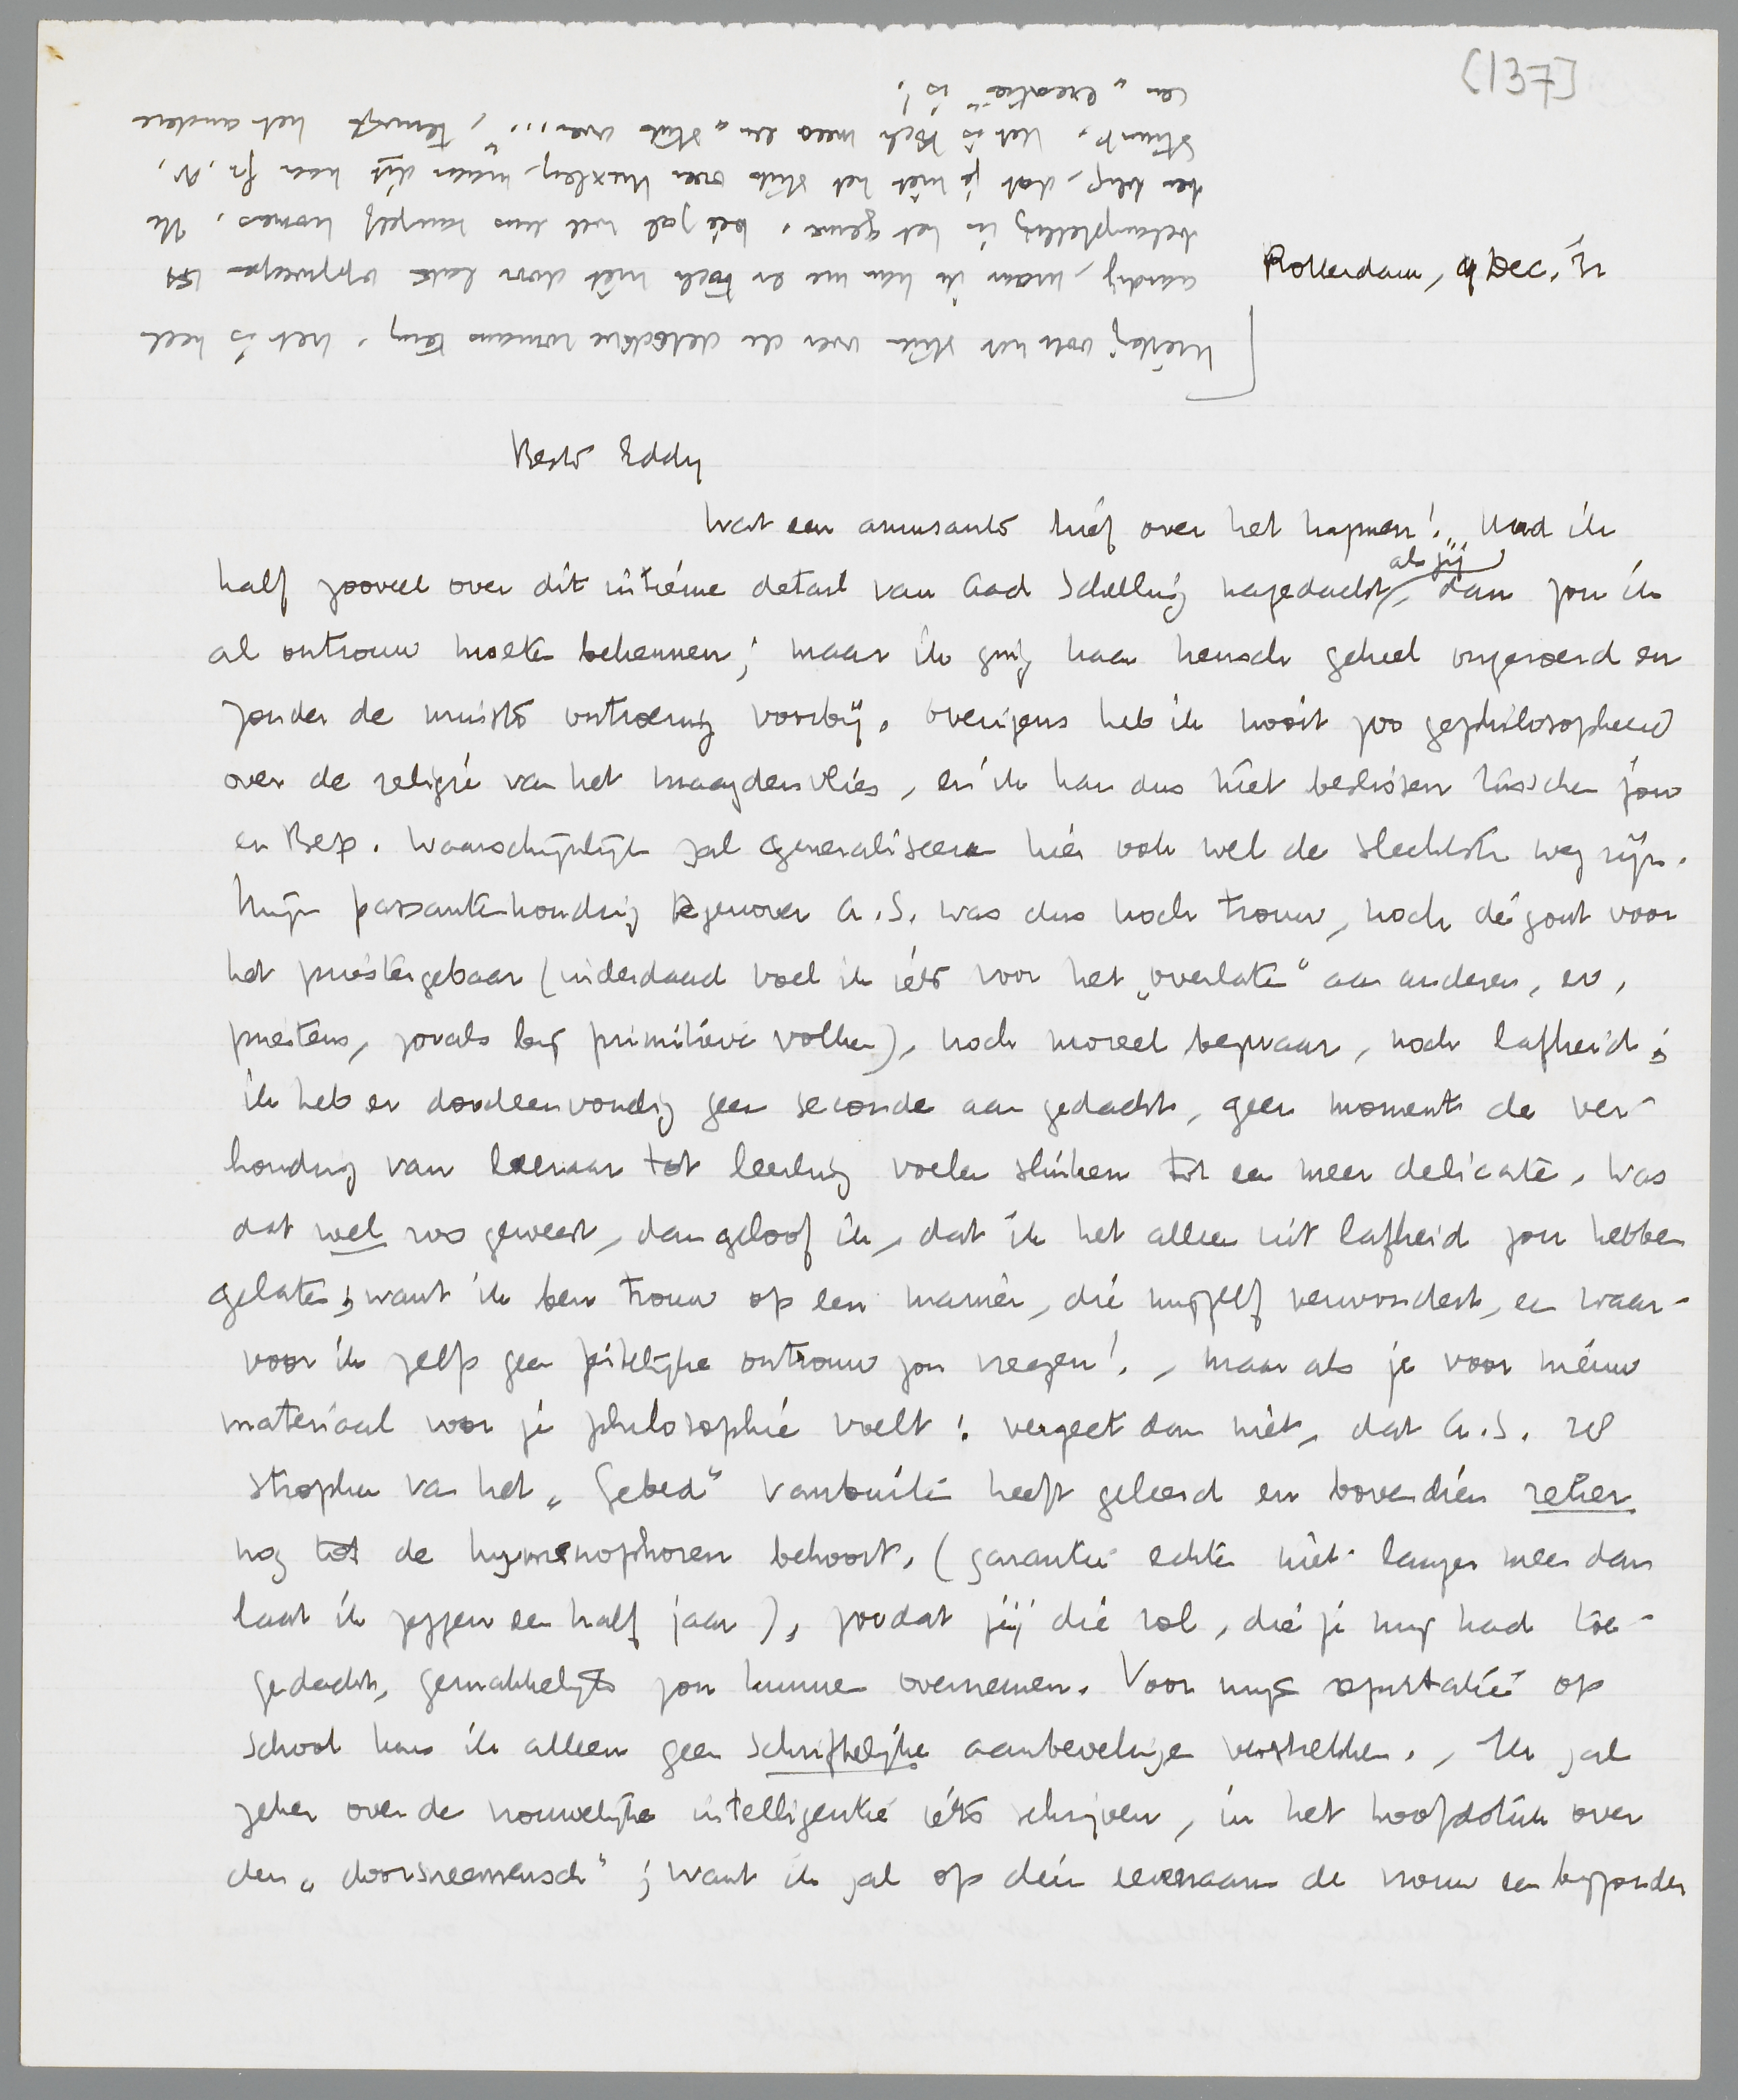 [137]
Rotterdam, 9 Dec. '32
Beste Eddy
Wat een amusante brief over het hymen! Had ik
half zooveel over dit intieme detail van Aad Schelling nagedacht, als jij dan zou ik
al ontrouw moeten bekennen; maar ik ging haar heusch geheel ongeroerd en
zonder de minste ontroering voorbij. Overigens heb ik nooit zoo gephilosopheerd
over de religie van het maagdenvlies, en ik kan dus niet beslissen tusschen jou
en Bep. Waarschijnlijk zal generaliseeren hier ook wel de slechtste weg zijn.
Mijn passantenhouding tegenover A.S. was dus noch trouw, noch dégout voor
het priestergebaar (inderdaad voel ik iets voor het „overlaten" aan anderen, ev.
priesters, zooals bij primitieve volken), noch moreel bezwaar, noch lafheid;
ik heb er doodeenvoudig geen seconde aan gedacht, geen moment de ver-
houding van leeraar tot leerling voelen slinken tot een meer delicate. Was
dat wel zoo geweest, dan geloof ik, dat ik het alleen uit lafheid zou hebben
gelaten; want ik ben trouw op een manier, die mijzelf verwondert, en waar-
voor ik zelfs geen feitelijke ontrouw zou vreezen! - Maar als je voor nieuw
materiaal voor je philosophie voelt: vergeet dan niet, dat A.S. 28
strophen van het „Gebed" vanbuiten heeft geleerd en bovendien zeker
nog tot de hymenophoren behoort. (garantie echter niet langer meer dan
laat ik zeggen een half jaar), zoodat jij die rol, die je mij had toe-
gedacht, gemakkelijk zou kunnen overnemen. Voor mijn reputatie op
school kan ik alleen geen schriftelijke aanbevelingen verstrekken. - Ik zal
zeker over de vrouwelijke intelligentie iets schrijven, in het hoofdstuk over
den „doorsneemensch"; want ik zal op dien evenaar de vrouw een bijzonder
Hierbij ook het stuk over de detective romans terug. Het is heel
aardig, maar ik kan me er toch niet door laten opzweepen tot
belangstelling in het genre. Dit zal wel eens vanzelf komen. Ik
ben blij, dat je niet het stuk over Huxley, maar dit naar Gr. N.
stuurt. Het is toch meer een „stuk over...", terwijl het andere
een „creatie" is!